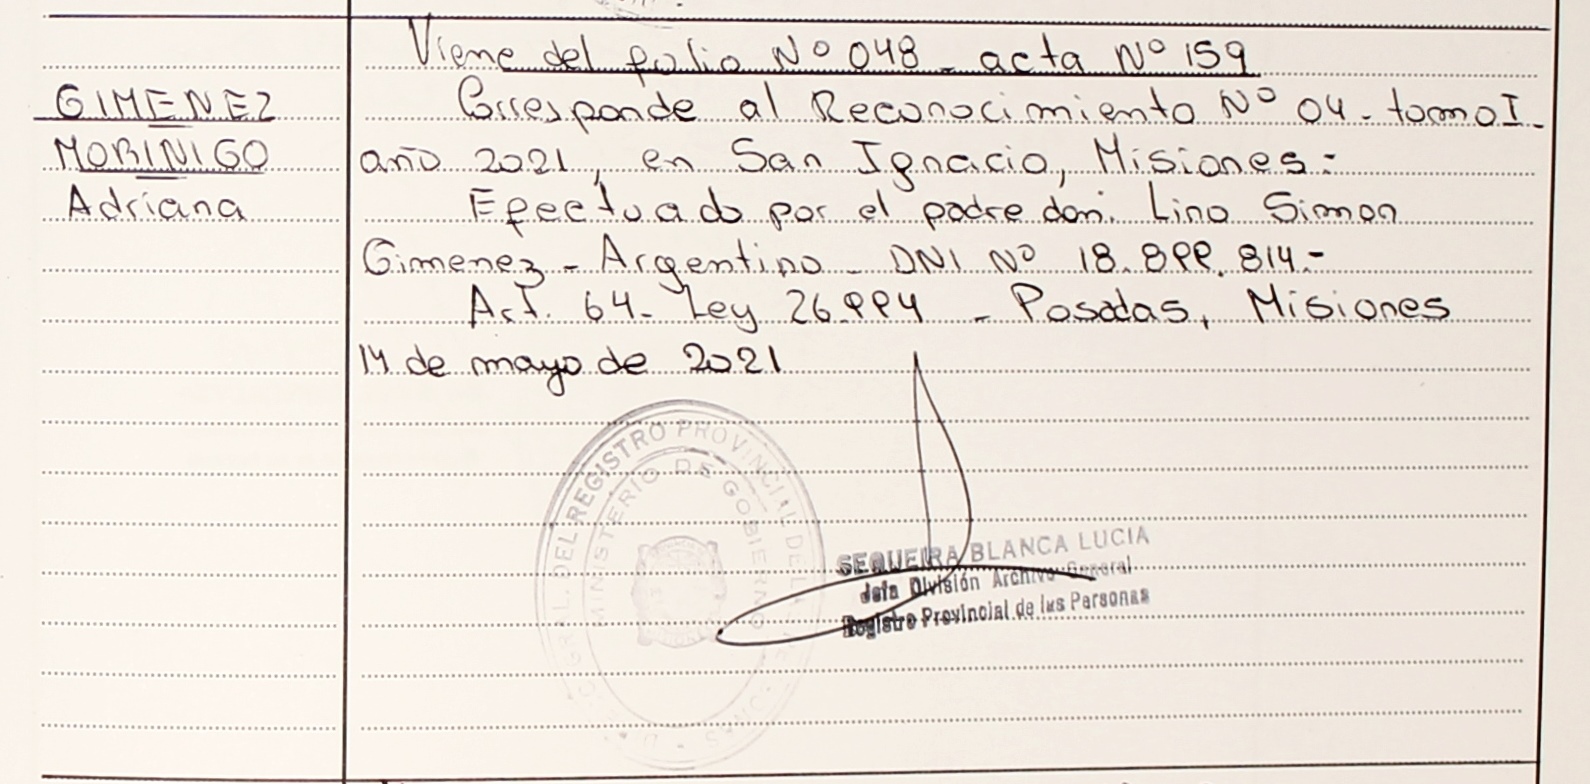 Viene del folio Nº 048 - acta Nº 159
GIMENEZ
Corresponde al Reconocimiento Nº 04 - tomo I -
MORINIGO
año 2021, en San Ignacio, Misiones:-
Adriana
Efectuado por el padre don: Lino Simon
Gimenez - Argentino - DNI Nº 18.899.814.-
Art. 64 - Ley 26.994 - Posadas, Misiones
14 de mayo de 2021
GRAL. DEL REGISTRO PROVINCIAL DE LAS
MINISTERIO DE GOBIERNO
SEQUEIRA BLANCA LUCIA
Jefa División Archivo General
Registro Provincial de las Personas